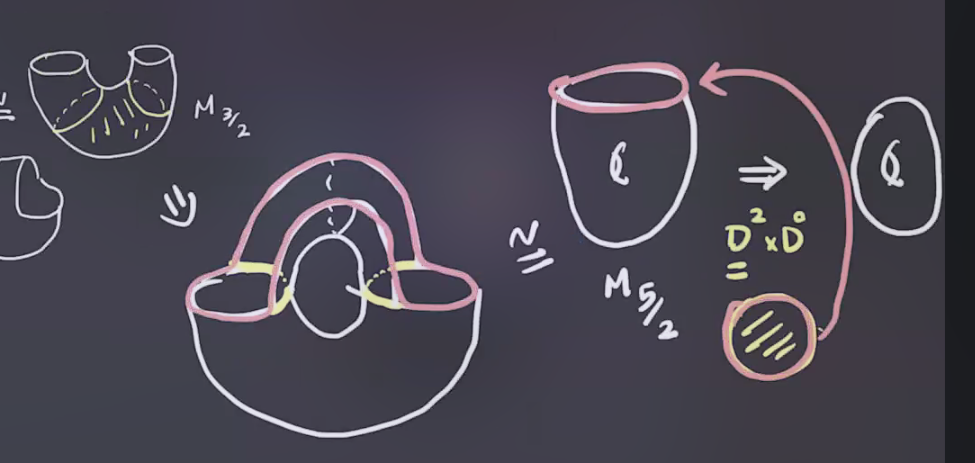 ≅
M 3/2
⇓
≅
M 5/2
⇒
D² × D⁰
=